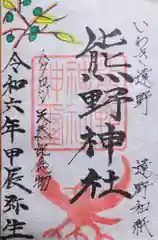 いわき遠野
熊野神社
遠野和紙
天然
令和六年甲辰弥生